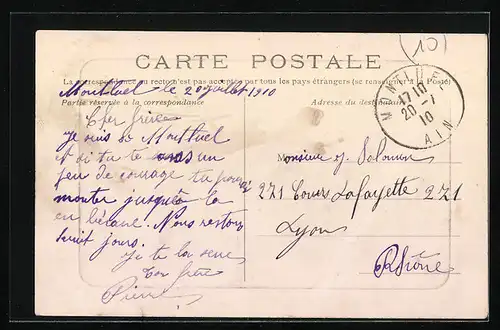 (10)
CARTE POSTALE
La correspondance au recto n'est pas acceptée par tous les pays étrangers (se renseigner à la Poste)
Montluel le 20 juillet 1910
Partie réservée à la correspondance
Adresse du destinataire
MONTLUEL
17 10
20 - 7
10
AIN
Cher frère
Je suis à Montluel
et si tu te un
peu de courage tu
monter jusqu'à la
en bécane. Nous restons
huit jours.
Je te la
ton frère
Pierre
Monsieur J. Salomon
271 Cours Lafayette 271
Lyon
Rhône